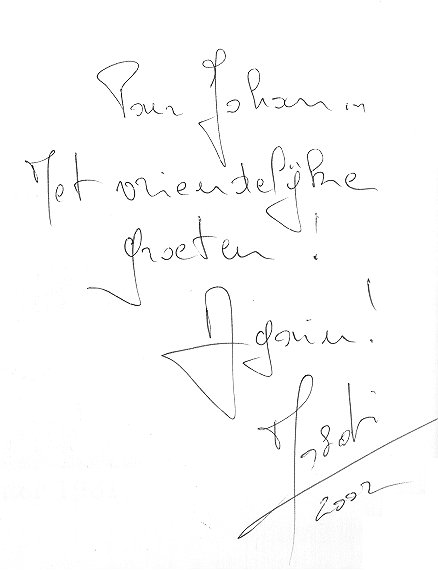 Pour Johan ...
Met vriendelijke
groeten !
Again !
2002